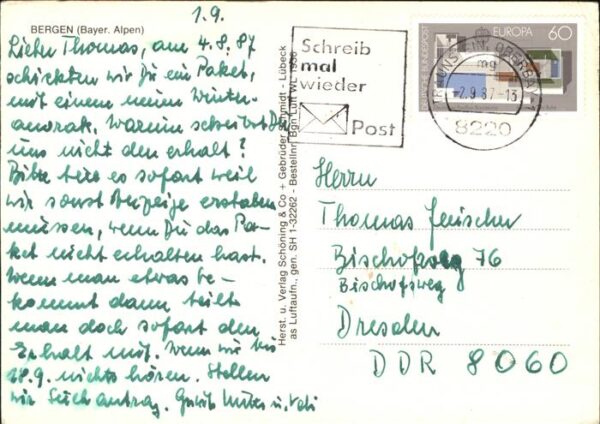 1.9.
BERGEN (Bayer. Alpen)
Lieber Thomas, am 4.8.87
schickten wir Dir ein Paket,
mit einem neuen Winter-
anorak. Warum schreibst Du
uns nicht den erhalt?
Bitte tue es sofort weil
wir sonst Anzeige erstatten
müssen, wenn Du das Pa-
ket nicht erhalten hast.
Wenn man etwas be-
kommt dann teilt
man doch sofort den
Erhalt mit. Wenn wir bis
18.9. nichts hören. Stellen
wir Suchantrag. Gruß u.
Herst. u. Verlag Schöning & Co + Gebrüder Schmidt - Lübeck
as Luftaufn., gen. SH 1-32262 - Bestellnr. Bgn Luft WL 1958
Schreib
mal
wieder
Post
DEUTSCHE BUNDESPOST
EUROPA 60
TRAUNSTEIN, OBERBAY
mg
-2.9.87-13
8220
Herrn
Thomas
Bischofsweg 76
Bischofsweg
Dresden
DDR 8060